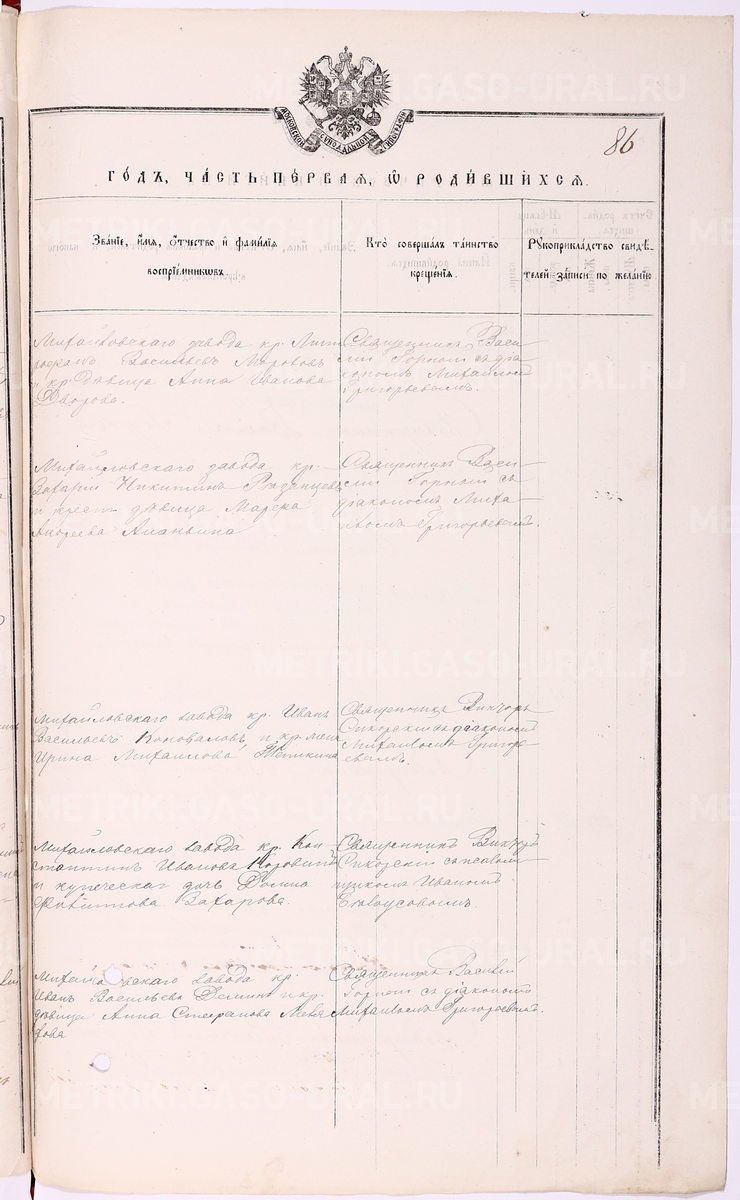 МОСКОВСКОЙ СѴНОДАЛЬНОЙ ТИПОГРАФІИ
86
ГО́ДЪ, ЧА́СТЬ ПЕ́РВАЯ, Ѡ РОДИ́ВШИХСЯ.
Зва́нїе, и҆́мѧ, ѻ҆́тчество и҆ фами́лїѧ
воспрїе́мниковъ.
Кто̀ соверша́лъ та́инство
креще́нїѧ.
Рꙋкоприкла́дство свидѣ́-
телей за́писи по жела́нїю
Михайловскаго завода кр. Мит
рофанъ Васильевъ
и кр. дѣвица Анна Иванова
Дворова.
Священникъ Васи
лій Горный съ діа
кономъ Михаиломъ
Григорьевымъ.
Михайловскаго завода кр.
Захарій Никитинъ Рязанцевъ
и крест. дѣвица
Андреева Ананьина
Священникъ Васи
лій Горный съ
діакономъ Миха
иломъ Григорьевымъ.
Михайловскаго завода кр. Иванъ
Васильевъ Коноваловъ и кр. жена
Ирина Михаилова
Священникъ Викторъ
Сикорскій съ діакономъ
Михаиломъ Григорь
евымъ.
Михайловскаго завода кр. Кон
стантинъ Ивановъ
и купеческая дочь
Филиппова Захарова.
Священникъ Викторъ
Сикорскій съ псалом
щикомъ Иваномъ
Бѣлоусовымъ.
Михайловскаго завода кр.
Иванъ Васильевъ Деминъ и кр.
дѣвица Анна Стефанова
Священникъ Василій
Горный съ діакономъ
Михаиломъ Григорьевымъ.
METRIKI.GASO-URAL.RU